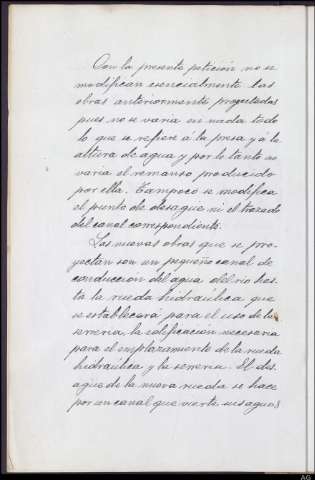 Con la presente petición no se
modifican esencialmente las
obras anteriormente proyectadas
pues no se varia en nada todo
lo que se refiere á la presa y á la
altura de agua y por lo tanto no
varia el remanso producido
por ella. Tampoco se modifica
el punto de desague ni el trazado
del canal correspondiente.
Las nuevas obras que se pro-
yectan son un pequeño canal de
conducción del agua del rio has-
ta la rueda hidraúlica que
se establecerá para el uso de la
serreria, la edificación necesaria
para el emplazamiento de la rueda
hidraúlica y la serreria. El des-
ague de la nueva rueda se hace
por un canal que vierte sus aguas
AG